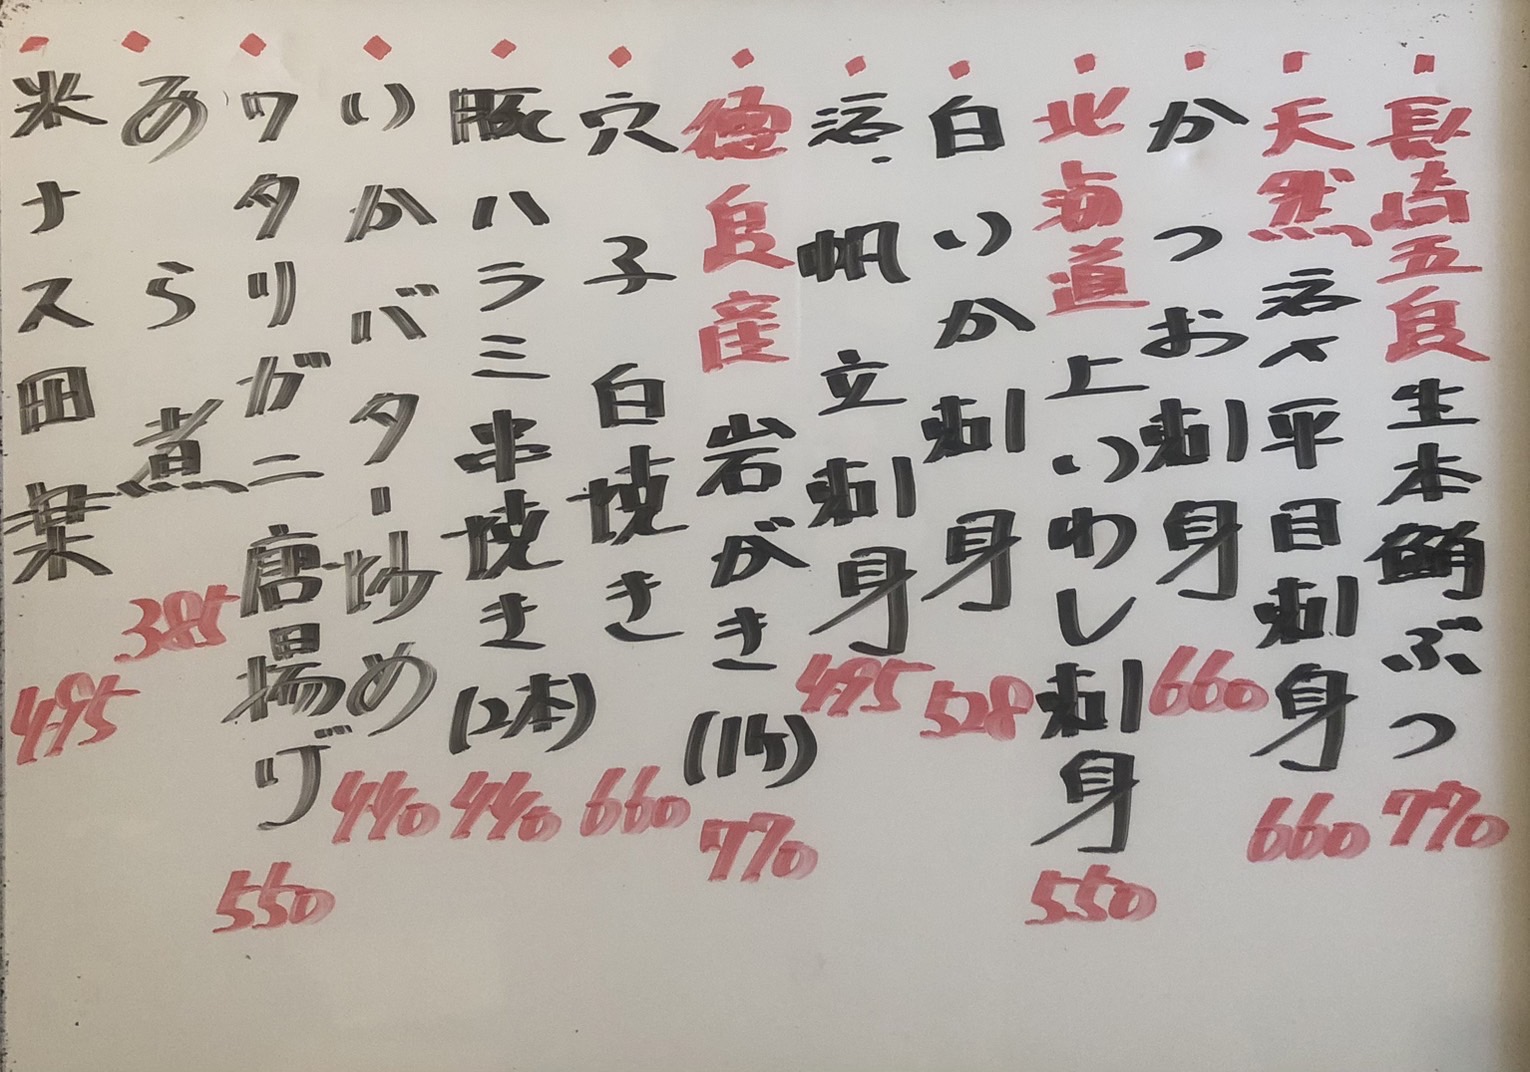 長崎五良 生本鮪ぶつ 770
天然 活〆平目刺身 660
かつお刺身 660
北海道 上いわし刺身 550
白いか刺身 528
活帆立刺身 495
徳良産 岩がき (1ケ) 770
穴子白焼き 660
豚ハラミ串焼き (2本) 440
いかバター炒め 440
ワタリガニ唐揚げ 550
あら煮 385
米ナス田楽 495